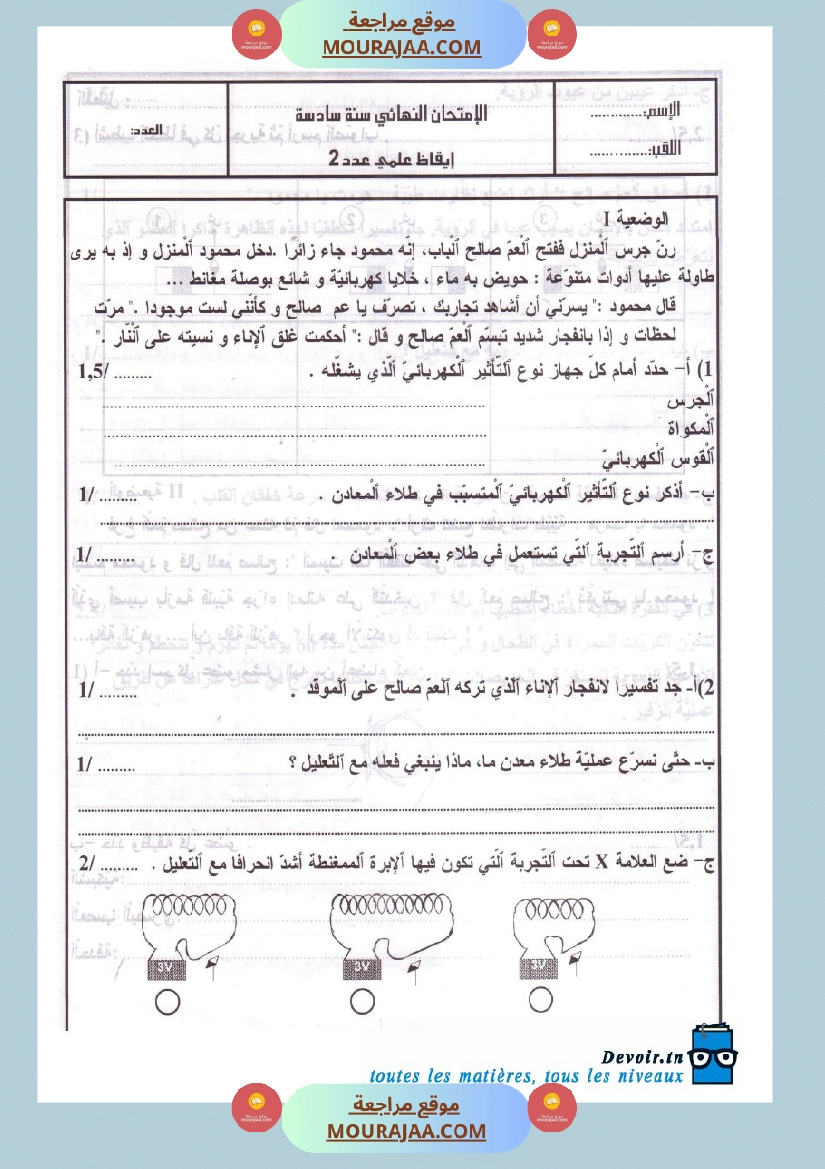 موقع مراجعة
MOURAJAA.COM
الإسم:.............
اللقب:..............
الإمتحان النهائي سنة سادسة
إيقاظ علمي عدد 2
العدد:
الوضعية I
رنّ جرس ٱلْمنزل ففتح ٱلْعمّ صالح ٱلْباب، إنّه محمود جاء زائرًا .دخل محمود ٱلْمنزل و إذ به يرى
طاولة عليها أدوات متنوّعة : حويض به ماء ، خلايا كهربائيّة و شائع بوصلة مغانط ...
قال محمود :" يسرّني أن أشاهد تجاربك ، تصرّف يا عم صالح و كأنّني لست موجودا ." مرّت
لحظات و إذا بانفجار شديد تبسّم ٱلْعمّ صالح و قال :" أحكمت غلق ٱلإناء و نسيته على ٱلنّار ."
1) أ– حدّد أمام كلّ جهاز نوع ٱلتّأثير ٱلْكهربائيّ ٱلّذي يشغّله . ......... /1,5
ٱلْجرس ................................
ٱلْمكواة ................................
ٱلْقوس ٱلْكهربائيّ ................................
ب– أذكر نوع ٱلتّأثير ٱلْكهربائيّ ٱلْمتسبّب في طلاء ٱلْمعادن . ......... /1
ج– أرسم ٱلتّجربة ٱلّتي تستعمل في طلاء بعض ٱلْمعادن . ......... /1
2)أ– جد تفسيرا لانفجار ٱلإناء ٱلّذي تركه ٱلْعمّ صالح على ٱلْموقد . ......... /1
ب– حتّى نسرّع عمليّة طلاء معدن ما، ماذا ينبغي فعله مع ٱلتّعليل ؟ ......... /1
ج– ضع العلامة X تحت ٱلتّجربة ٱلّتي تكون فيها ٱلإبرة الممغنطة أشدّ انحرافا مع ٱلتّعليل . ......... /2
3V
3V
3V
Devoir.tn
toutes les matières, tous les niveaux
موقع مراجعة
MOURAJAA.COM